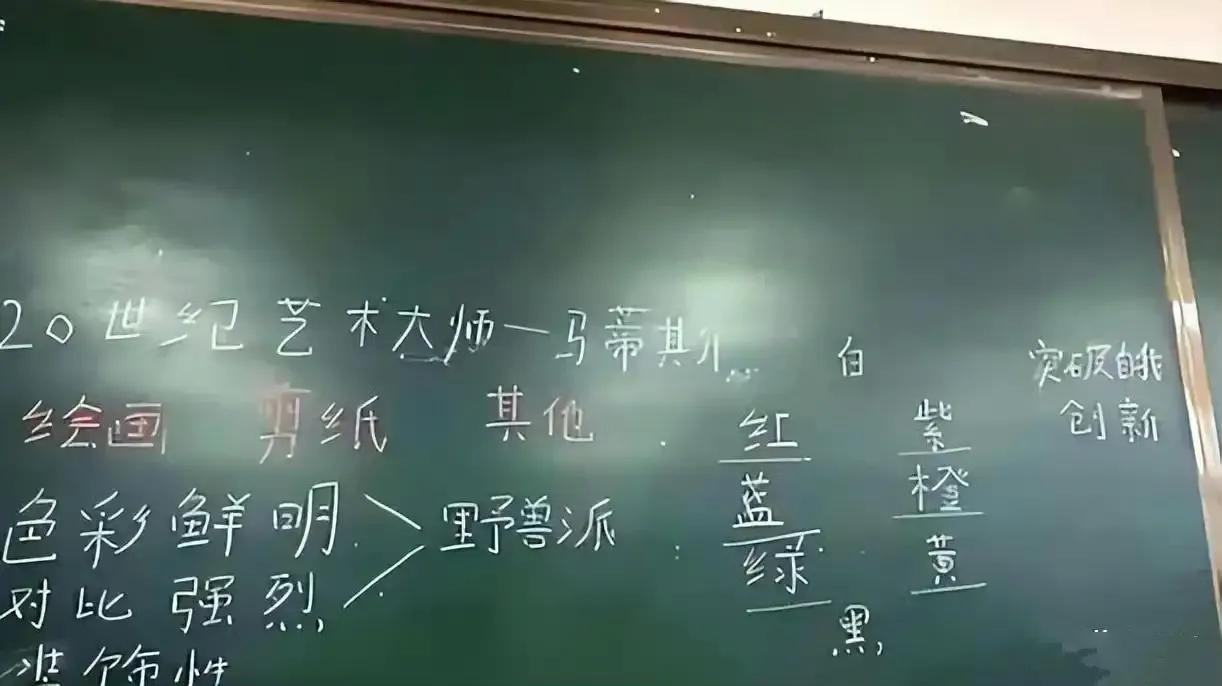 20世纪艺术大师一马蒂斯
白
突破自我
创新
绘画 剪纸 其他
红 紫
蓝 橙
绿 黄
黑
色彩鲜明
对比强烈
野兽派
装饰性